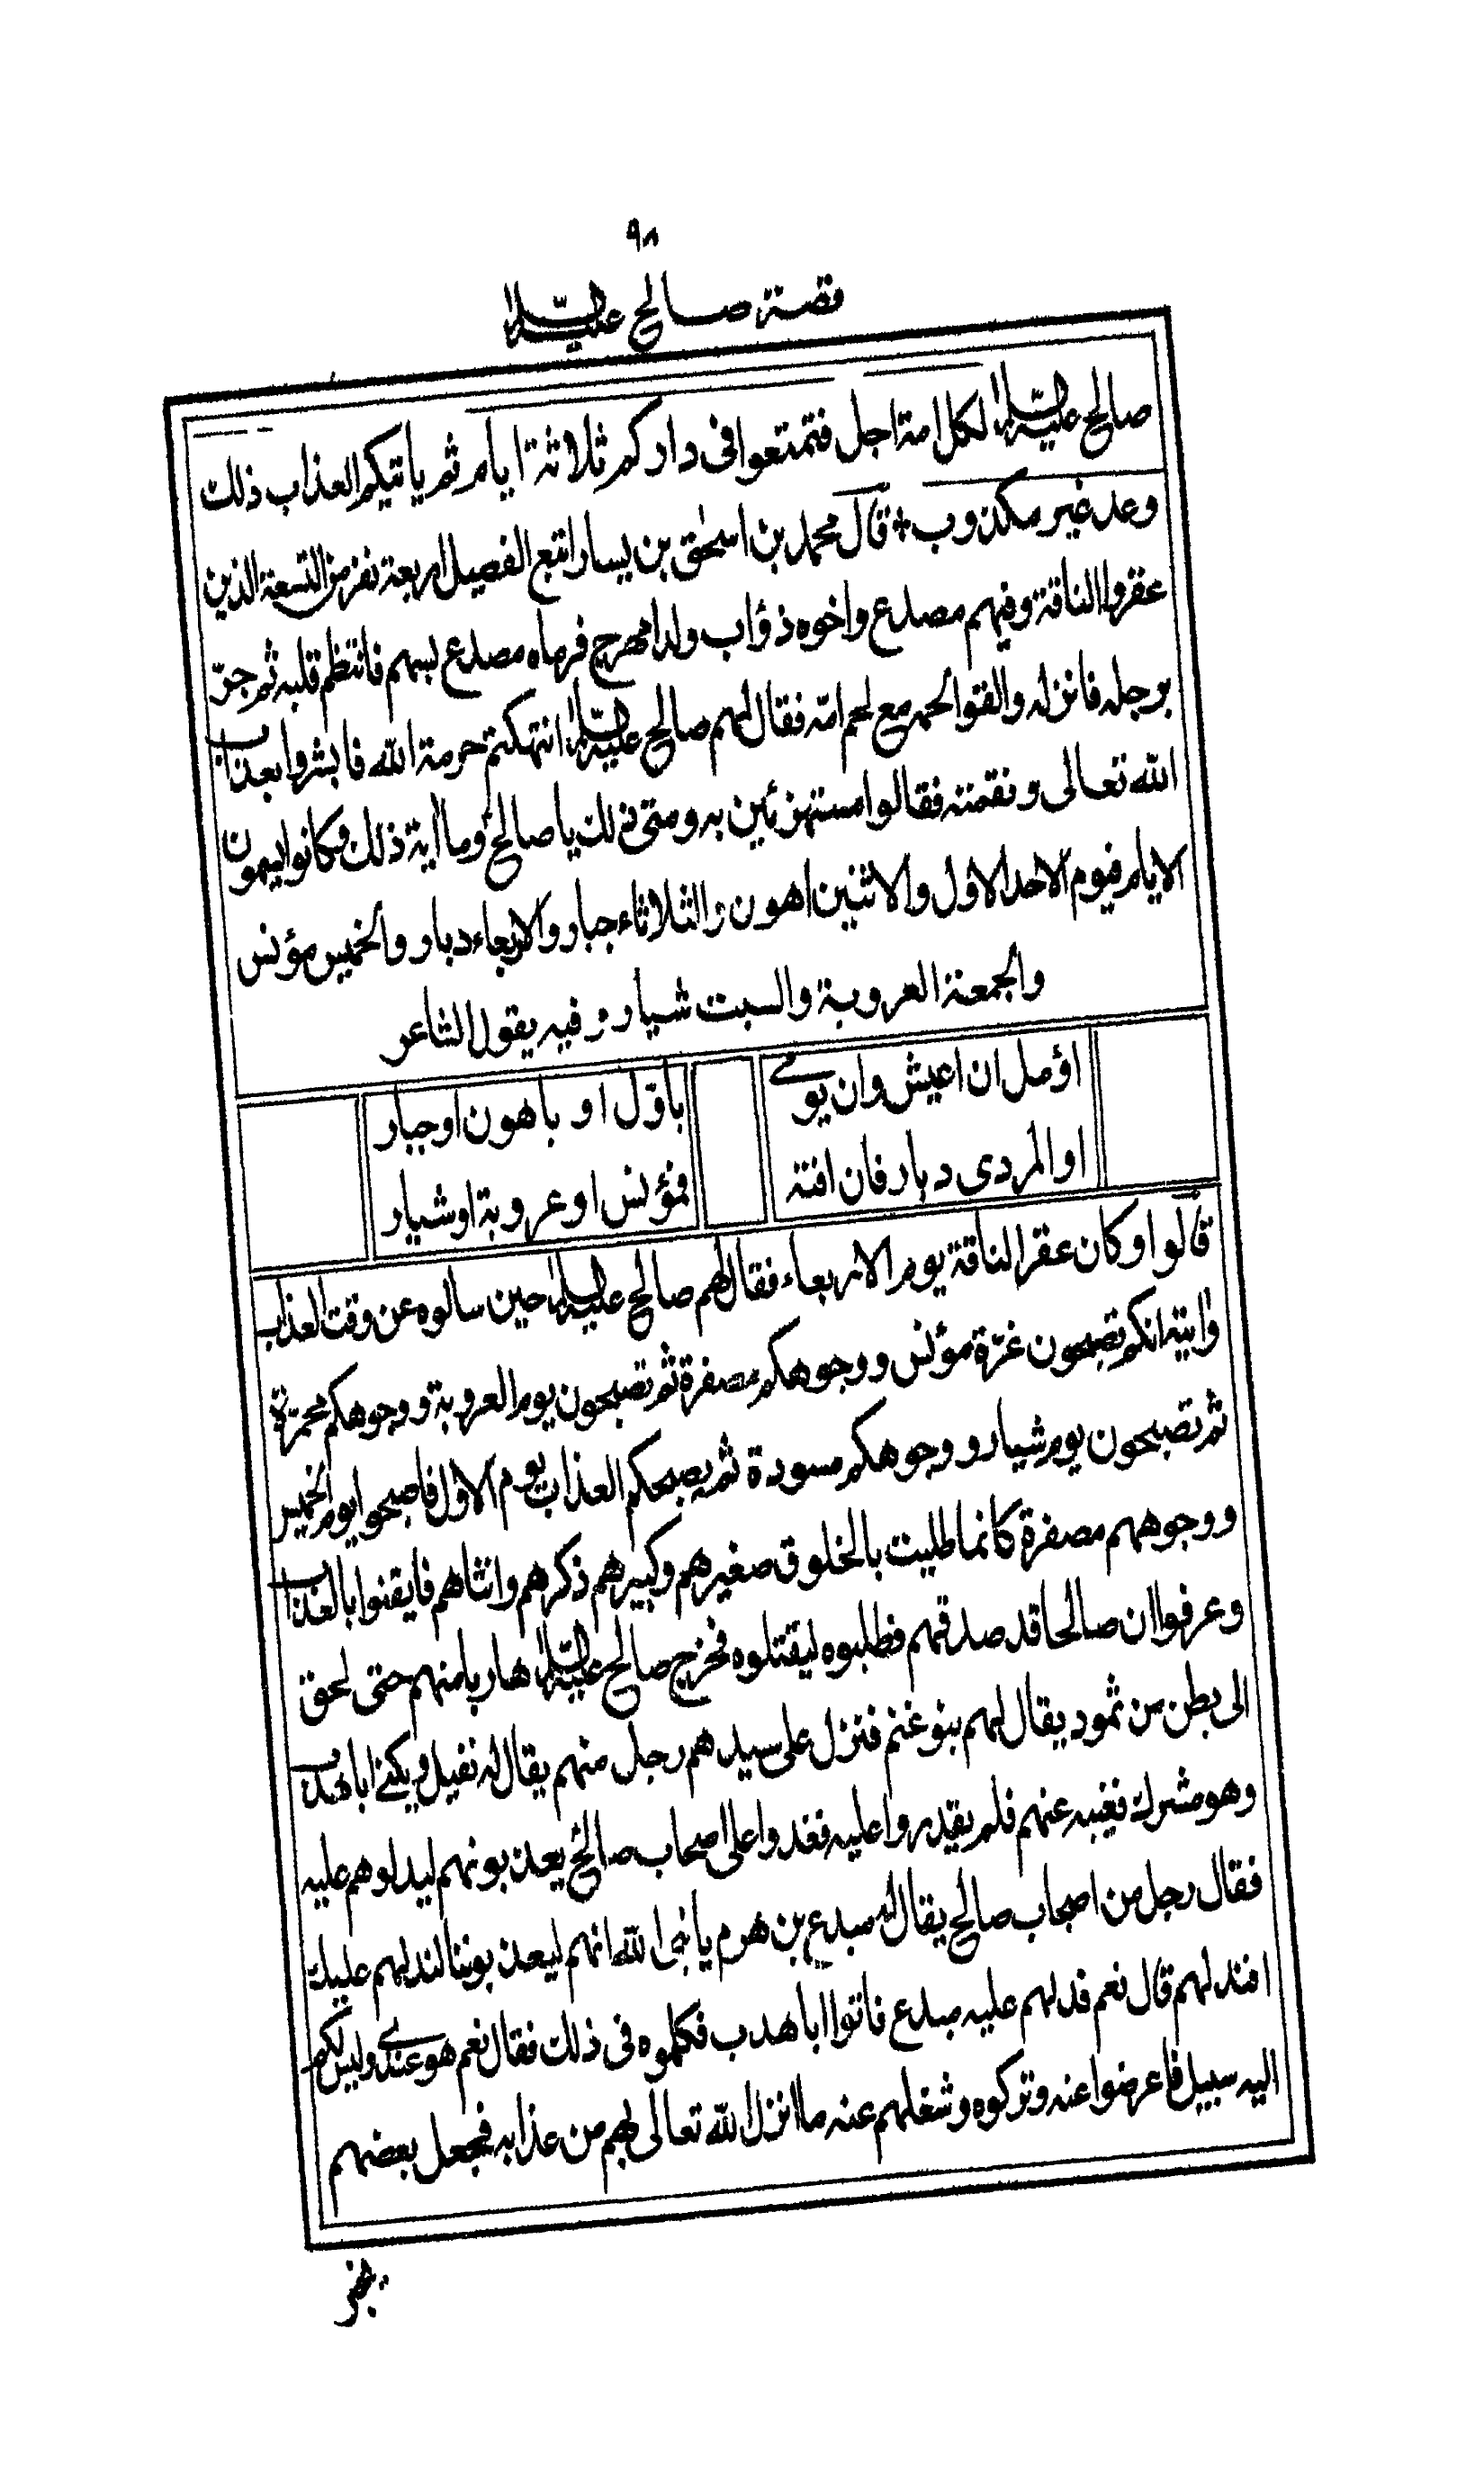 ٩٨
قصة صالح عليه السلام
صالح عليه السلام لكل امة اجل فتمتعوا فى داركم ثلاثة ايام ثم ياتيكم العذاب ذلك
وعد غير مكذوب * قال محمد بن اسحٰق بن يسار اتبع الفصيل اربعة نفر من التسعة الذين
عقروا الناقة وفيهم مصدع واخوه ذؤاب ولدا مهرج فرماه مصدع بسهم فانتظم قلبه ثم جرّ
برجله فانزله والقوا لحمه مع لحم امّه فقال لهم صالح عليه السلام انتهكتم حرمة الله فابشروا بعذاب
الله تعالى ونقمته فقالوا مستهزئين به ومتى ذلك يا صالح وما اٰية ذلك وكانوا يسمون
الايام فيوم الاحد الاول والاثنين اهون والثلاثاء جبار والاربعاء دبار والخميس مؤنس
والجمعة العروبة والسبت شيار وفيه يقول الشاعر
اؤمل ان اعيش وان يومے
باوّل او باهون او جبار
او المردى دبار فان افته
فمؤنس او عروبة او شيار
قالوا وكان عقر الناقة يوم الاربعاء فقال لهم صالح عليه السلام حين سالوه عن وقت العذاب
واٰيته انكم تصبحون غرّة مؤنس ووجوهكم مصفرة ثم تصبحون يوم العروبة ووجوهكم محمرّة
ثم تصبحون يوم شيار ووجوهكم مسودة ثم يصبحكم العذاب يوم الاول فاصبحوا يوم الخميس
ووجوههم مصفرة كانما طليت بالخلوق صغيرهم وكبيرهم ذكرهم وانثاهم فايقنوا بالعذاب
وعرفوا ان صالحا قد صدقهم فطلبوه ليقتلوه فخرج صالح عليه السلام هاربا منهم حتى لحق
الى بطن من ثمود يقال لهم بنو غنم فنزل على سيدهم رجل منهم يقال له نفيل ويكنے ابا هدب
وهو مشرك فغيبه عنهم فلم يقدروا عليه فغدوا على اصحاب صالح يعذبونهم ليدلوهم عليه
فقال رجل من اصحاب صالح يقال له مبدع بن هرم يا نبى الله انهم ليعذبوننا لندلهم عليك
افندلهم قال نعم فدلهم عليه مبدع فاتوا ابا هدب فكلموه فى ذلك فقال نعم هو عندے وليس لكم
اليه سبيل فاعرضوا عنه وتركوه وشغلهم عنه ما انزل الله تعالى بهم من عذابه فجعل بعضهم
يخبر